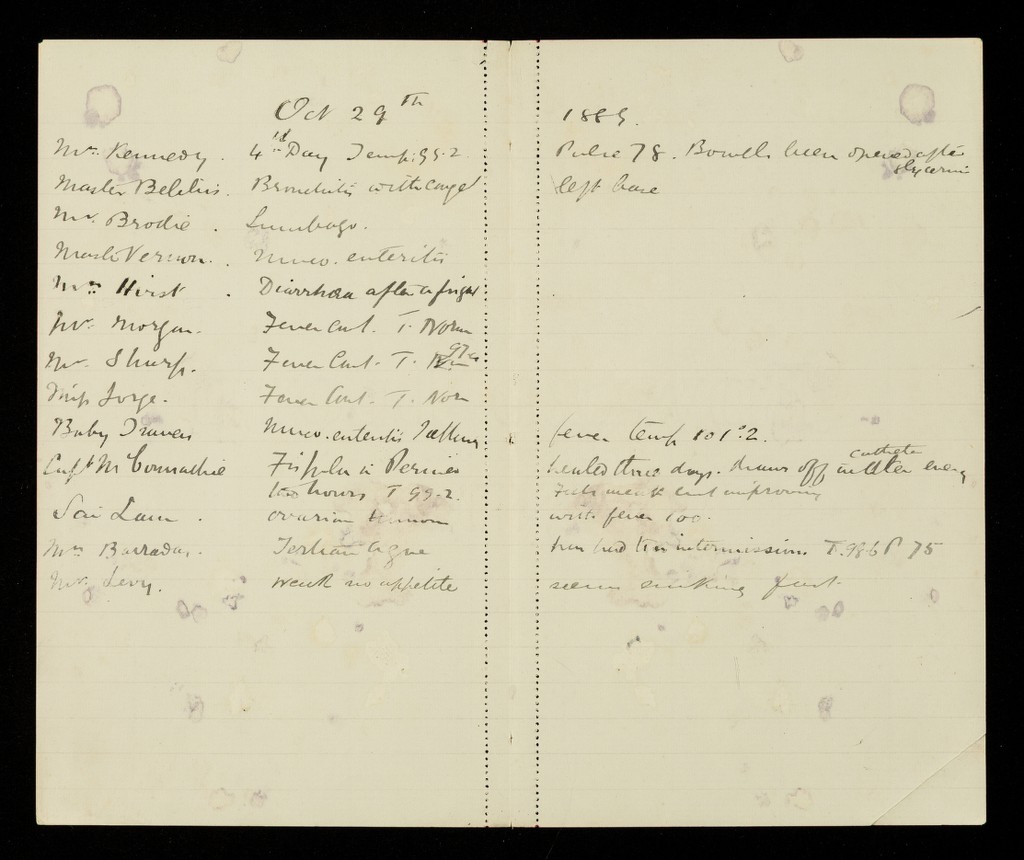 Oct 29th 1889.
Mrs. Kennedy. 4th Day Temp: 99.2. Pulse 78. Bowells been opened after glycerin
Master Belilius. Bronchitis with left base
Mr. Brodie. Lumbago.
Master Vernon. Muco. enteritis
Mrs Hirst. Diarrhœa after a fright
Mr. Morgan. Fever Conl. T. Norm
Mr. Sharp. Fever Conl. T.
Miss Jorge. Fever Conl. T. Norm
Baby Travers Muco. enteritis Teething fever temp 101°.2.
Capt McConnachie Fistula in Perineo healed three days. draws off catheter every
two hours T 99.2. Feels weak but improving
Sai Lam. Ovarian tumour with fever 100.
Mrs Barradas. Tertian ague has had two intermissions. T. 98.6 P 75
Mr. Levy. weak no appetite seems sinking fast